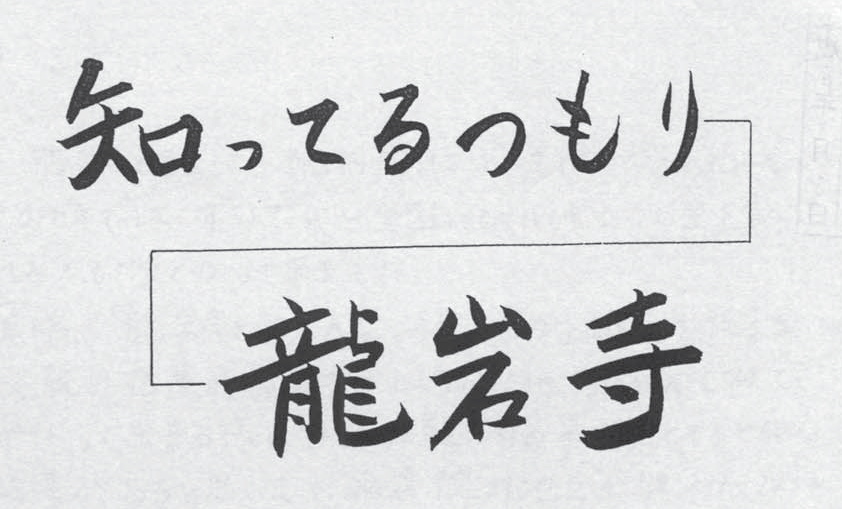 知ってるつもり
龍岩寺